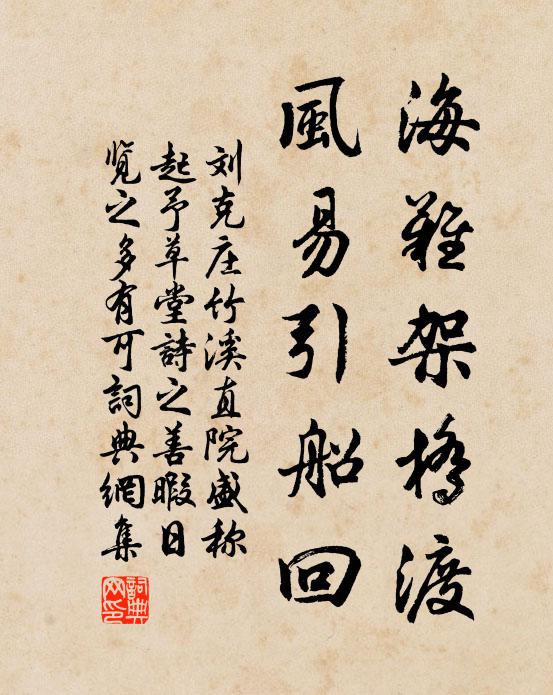 海難架橋渡
風易引船回
刘克庄竹溪直院盛称
起予草堂詩之善暇日
览之多有可詞典網集
詞典
网印